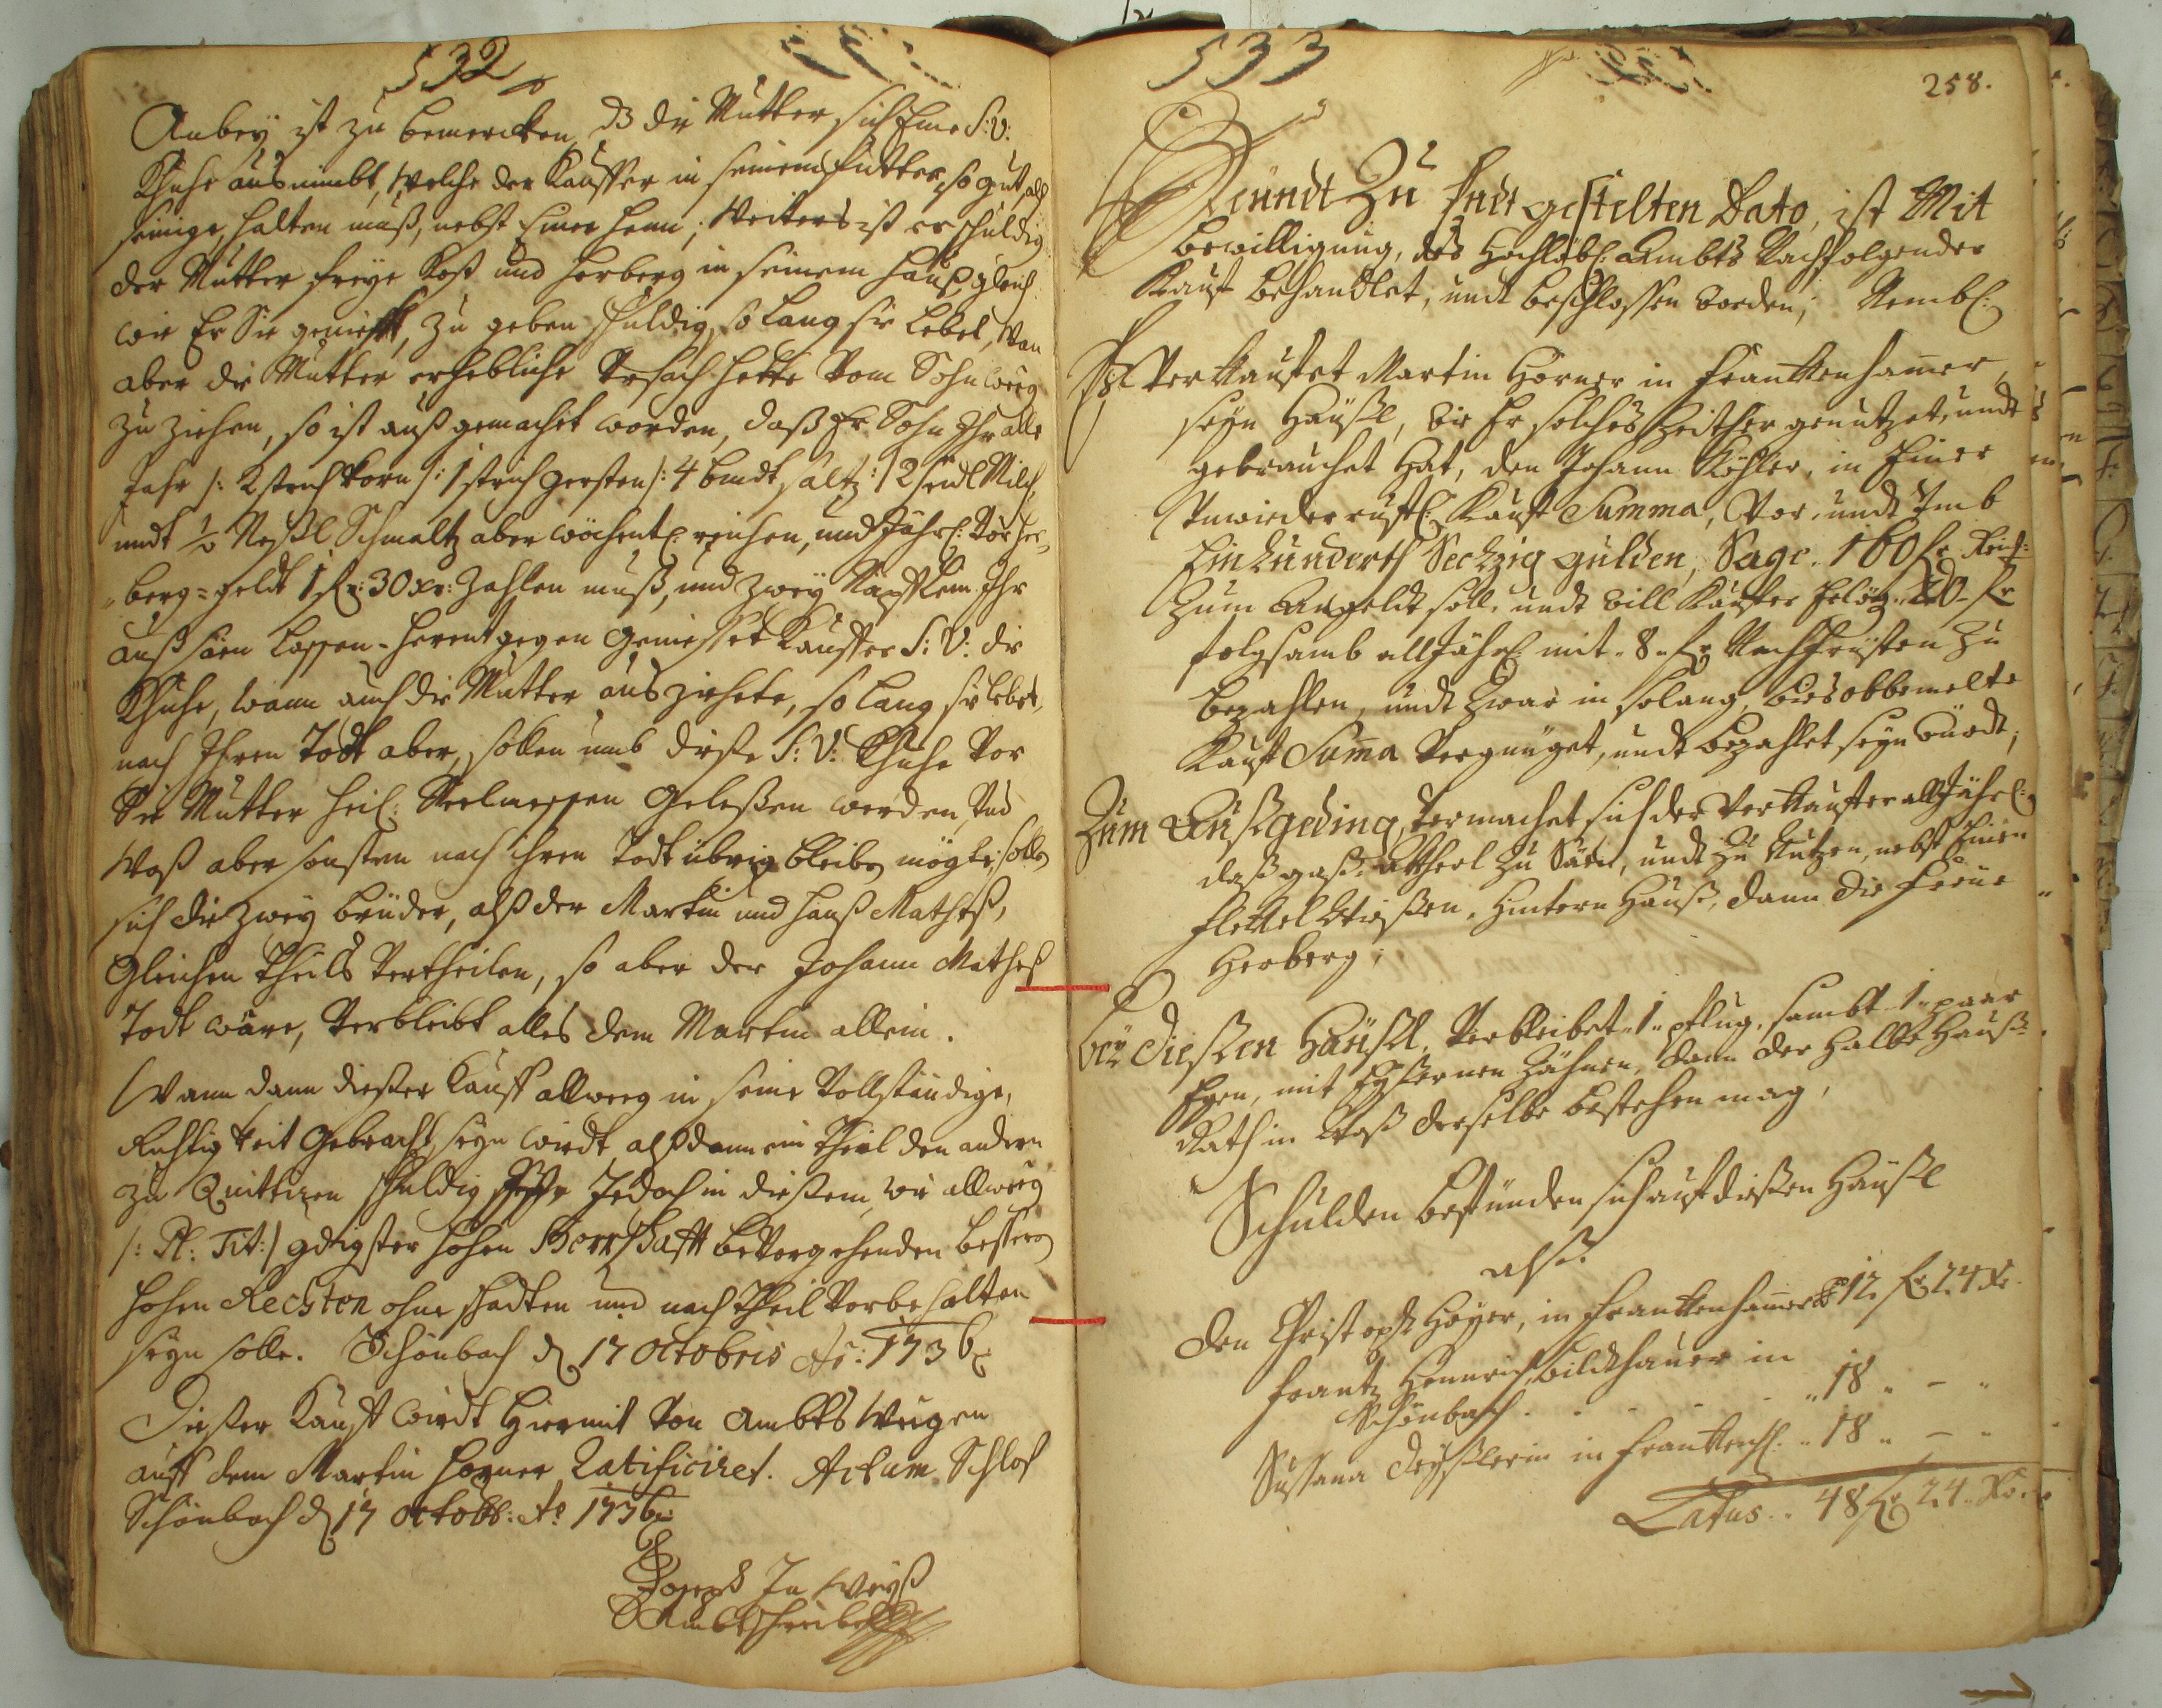 532
Anbey ist zu bemercken, dß die Mutter sich Eine S: V:
Khuhe ausnimbt, Welche der Kauffer in seinem Futter, so gut, alß
seinige, halten muß, nebst Einer Henn; Weiters ist er schuldig
der Mutter freye Kost und Herberg in seinem Hauß, gleich
wie Er Sie genießt, zu geben schuldig, so lang sie lebet, Wan
aber die Mutter erhebliche Vrsach hette vom Sohn weeg
zu ziehen, so ist auß gemachet worden, daß Er Sohn Ihr alle
Jahr /: 2 strich Korn /: 1 strich gersten /: 4 bindt saltz :/ 2 seidl Milch,
undt ½ Neßl Schmaltz aber wöchentl: reichen, und Jährl: Vor Her-
berg-geldt 1 fl: 30 xr: Zahlen muß, und zwey Näpfl Lein Ihr
außsäen lassen. Herentgegen Genießet Kauffer S: V: die
Khuhe, wann auch die Mutter ausziehete, so lang sie lebet,
nach Ihren Todt aber, sollen umb dieße S: V: Khuhe Vor
Die Mutter heil: Seelmessen Geleßen werden, Vnd
Waß aber sonsten nach ihren Todt übrig bleiben mögte, sollen
sich die zwey brüder, alß der Martin und Hanß Matheß,
Gleichen Theils Vertheilen, so aber der Johann Matheß
Todt wäre, Verbleibt alles dem Martin allein.
Wann dann dießer Kauff allweeg in seine Vollständige,
Richtigkeit Gebracht seyn wirdt, alßdann ein Theil den andern
zu Quittiren schuldig Jedoch in dießem, wie allweeg
/: Pl: Tit: / gdigster hohen Herrschafft bevorgehenden bessern
hohen Rechten ohne schadten und nach Theil Vorbehalten
seyn solle. Schönbach d 17 Octobris Ao: 1736
Dießer Kauff wirdt Hiermit Von Ambts Weegen
auff dem Martin Horner Ratificiret. Actum Schloß
Schönbach d 17 Octobr: Ao 1736
Joseph Weyß
Ambtschreiber
533
258.
Heündt Zu Endt gestelten Dato, ist Mit
bewilligung, des Hochlöbl: Ambts Nachfolgender
Kauf behandlet, undt beschlossen worden; Nembl:
Es Verkauffet Martin Horner in Franckenhamer,
seyn Häußl, wie Er solches Zeithero genutzet, undt
gebrauchet Hat, den Johann Köhler, in Einer
Vnwiederruffl: Kauff Summa, Vor, undt Vmb
Einhunderth Sechzig gulden, Sage. 160 fl Reinl:
Zum Angeldt soll, undt will Käuffer Erlög. 20 fl
folgsamb alljährl: mit. 8. fl Nachfristen zu
bezahlen, undt Zwar in solang, bies obbemelte
Kauff Suma Vergnüget, undt bezahlet seyn würdt;
Zum Außgeding Vermachet sich der Verkauffer alljährl:
daß Ackherl zu Säen, undt zu Nutzen, nebst Einen
fleckel Wießen, Hintern Hauß, dann die freüe
Herberg;
bey dießen Häußl, Verbleibet. 1. pflug, sambt. 1. paar
Egen, mit Eyßernen Zähnen, dann der Halbe Hauß-
Rath in Waß derselbe bestehen mag,
Schulden befünden sich auf dießen Häußl
alß.
Den Christoph Höyer, in Franckenhamer 12 fl 24 Xr.
Frantz Heinrich, bildthauer in
Schönbach . . . . 18 „ – „
Sussana in Franckenh: „ 18 „ – „
Latus . . 48 fl 24 Xr.